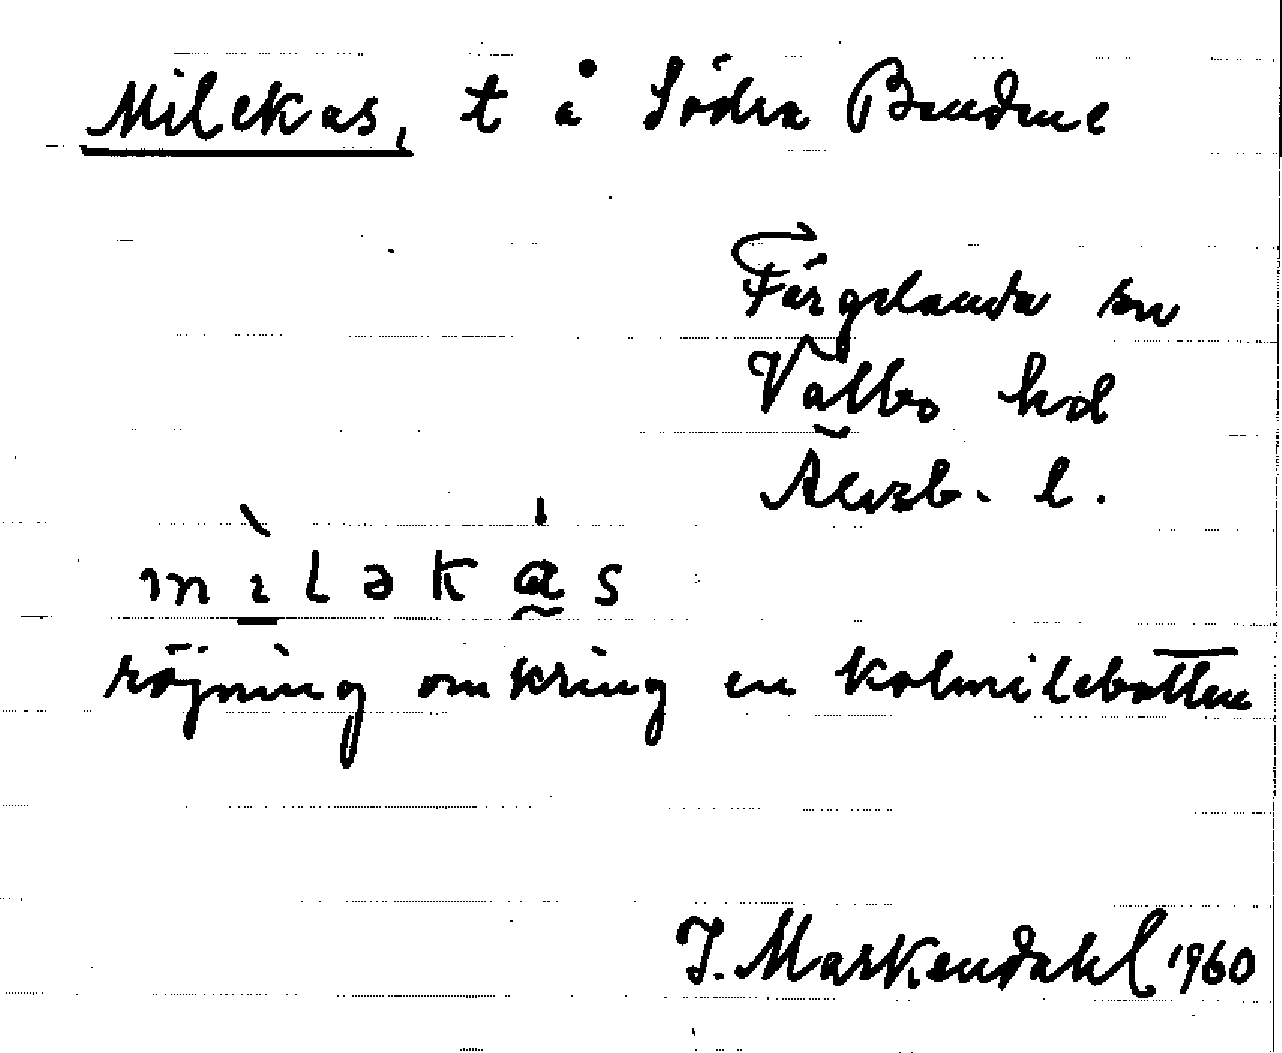 Milekas, t å Södra Bredene
Färgelanda sn
Valbo hd
Älvsb. l.
mìləkás
röjning omkring en kolmilebotten
J. Markendahl 1960